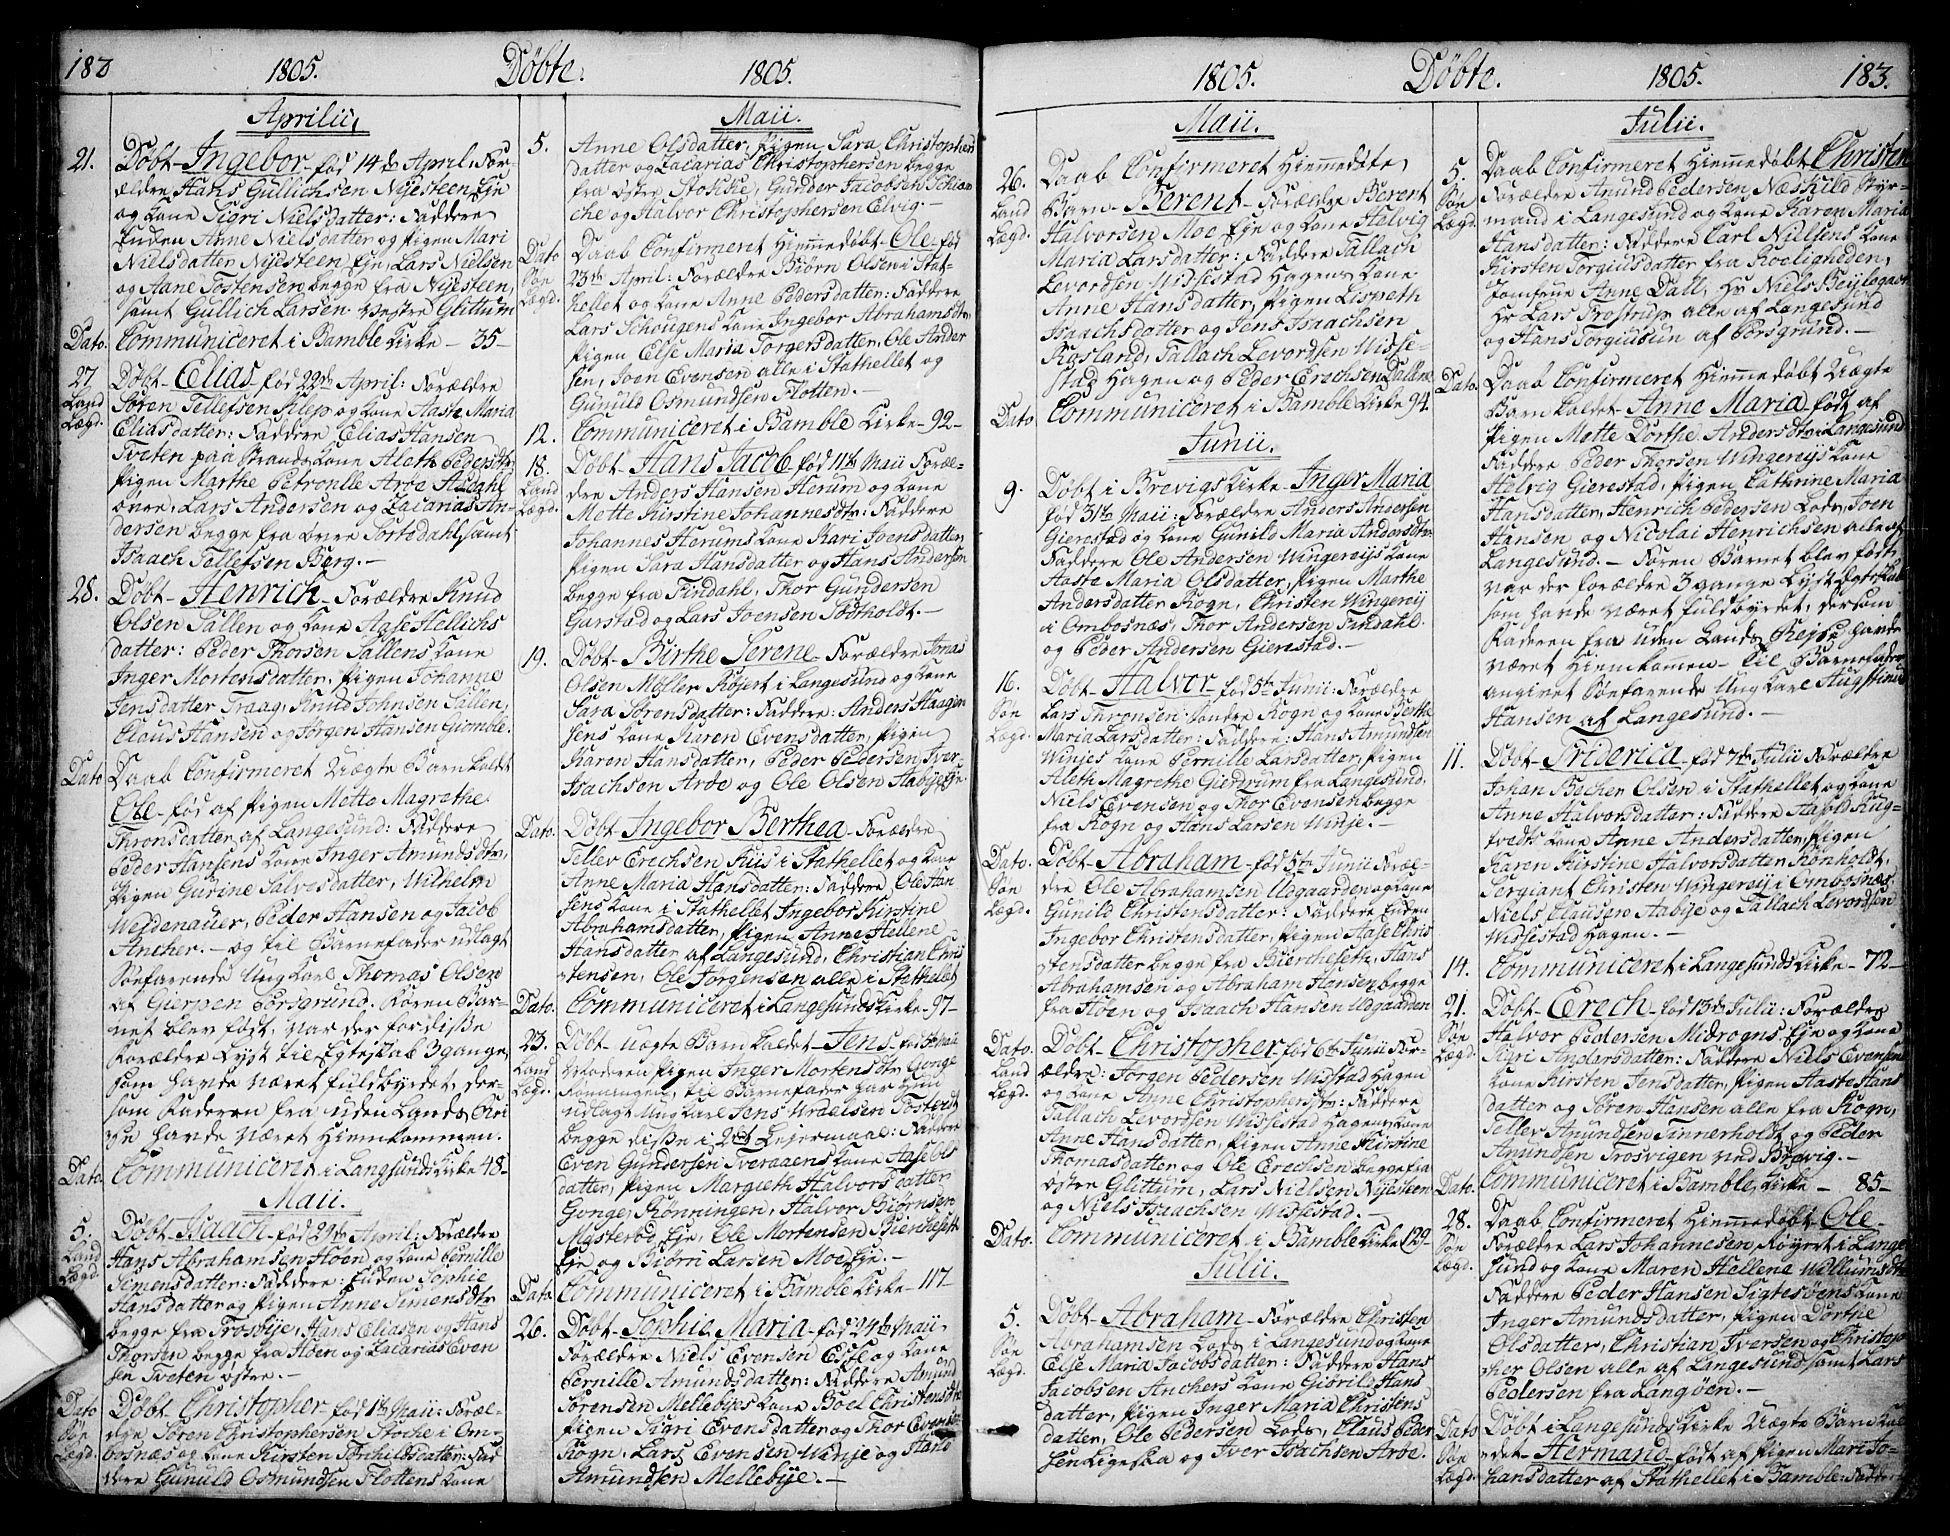 182 1805. Döbte. 1805.
Aprilii.
21. Döbt Ingebor född 14de April. For-
ældre Hans Gullichsen Nyesteen Eje
og Kone Sigri Nielsdatter: Faddere
Enken Anne Nielsdatter og Pigen Mari
Nielsdatter Nyesteen Eje, Lars Nielsen
og Aane Tostensen begge fra Nyesteen,
samt Gullich Larsen Vestre Glittum
Dato. Communiceret i Bamble Kirke – 35 –
27. Döbt Elias föd 22de April: Forældre
Land Sören Tellefsen Kilep og Kone Aaste Maria
Lægd. Eliasdatter: Faddere Elias Hansen
Tveten paa Strands Kone Aleth Pedersdtr
Pigen Marthe Petronlle Aröe Aasdahl
övre, Lars Andersen og Zacarias An-
dersen begge fra Övre Sortedahl samt
Isaach Tellefsen Berg. –
28. Döbt Henrich Forældre Knud
Olsen Tallen og Kone Aase Hellichs
datter: Peder Thorsen Tallens Kone
Inger Mortensdatter, Pigen Johanne
Jensdatter Traag, Knud Johnsen Tallen,
Claus Hansen og Jörgen Hansen Giomble.
Dato Daab Confirmeret Uægte Barn kaldet
Ole föd af Pigen Mette Magrethe
Thronsdatter af Langesund: Faddere
Peder Hansens Kone Inger Amundsdtr,
Pigen Gurine Salvesdatter, Wilhelm
Weidenauer, Peder Hansen og Jacob
Ancher. – og til Barnefader udlagt
Söefarende Ung Karl Thomas Olsen
af Gierpen Porsgrund. Förend Bar-
net blev födt, var der for disse
Forældre Lyst til Egteskab 3 gange,
som havde været fuldbyrdet, der-
som Faderen fra uden Lands Rei
se havde været hiemkommen.
Dato Communiceret i Langesunds Kirke 48 –
Maii.
5. Döbt Isaach föd 29de April: Forældre
Land Hans Abrahamsen Höen og Kone Pernille
Lægd Simensdatter: Faddere: Enken Sophie
Hansdatter og Pigen Anne Simensdtr
begge fra Trosbye, Hans Eliasen og Hans
Thorsen begge fra Höen og Zacarias Even
sen Tveten östre. –
Dato Döbt Christopher föd 1de Maii: Foræl-
Söe dre Sören Christophersen Stoche i Om-
Lægd. bosnæs og Kone Kirsten Torchildsdatter: Fad
dere Gunuld Osmundsen Flottens Kone
Maii.
5. Anne Olsdatter, Pigen Sara Christophers
datter og Zacarias Christophersen begge
fra östre Stokke, Gunder Jacobsen
che og Halvor Christophersen Elvig. –
Dato Daab Confirmeret Hiemmedöbt Ole föd
Söe 23de April: Forældre Biörn Olsen i Stat-
Lægd. hellet og Kone Anne Pedersdatter: Faddere
Lars Schougens Kone Ingebor Abrahamsdtr
Pigen Else Maria Torgersdatter, Ole Ander
sen, Joen Evensen alle i Stathellet og
Gunuld Osmundsen Flotten. –
12. Communiceret i Bamble Kirke – 92 –
18. Döbt Hans Jacob föd 11te Maii Foræl-
Land dre Anders Hansen Herum og Kone
Lægd. Mette Kirstine Johannesdtr: Faddere
Johannes Herums Kone Kari Joensdatter
Pigen Sara Hansdatter og Hans Andersen
begge fra Findahl, Thor Gundersen
Garstad og Lars Joensen Södtholdt. –
19. Döbt Birthe Serene Forældre Jonas
Olsen Möller Röjert i Langesund og Kone
Sara Sörensdatter: Faddere: Anders Haagen
sens Kone Karen Evensdatter, Pigen
Karen Hansdatter, Peder Pedersen, Iver
Isachsen Aröe og Ole Olsen Aabye Eje.
Dato. Döbt Ingebor Berthea Forældre
Tellef Erechsen Kiis i Stathellet og Kone
Anne Maria Hansdatter: Faddere, Ole Han
sens Kone i Stathellet Ingebor Kirstine
Abrahamsdatter, Pigen Anne Hellene
Hansdatter af Langesund, Christian Chris
tensen, Ole Jörgensen alle i Stathellet
Dato. Communiceret i Langesunds Kirke – 97 –
23. Döbt uægte Barn kaldet Jens föd Maii
Land Moderen Pigen Inger Mortensdtr Gonge
Lægd. Rönningen, til Barnefader har hun
udlagt Ung Karl Jens Tostrup
begge disse i 2det Lejermaal: Faddere
Even Gundersen Tveraaens Kone Aase Ols
datter, Pigen Margreth Halvorsdatter
Gonge Rönningen, Halvor Biörnsen
Mysterböe Eje, Ole Mortensen Biercheseth
Eje og Biörn Larsen Moe Eje. –
Dato. Communiceret i Bamble Kirke – 117
26. Döbt Sophie Maria föd 24de Maii
Forældre Niels Evensen Esse og Kone
Pernille Amundsdatter: Faddere Amund
Sörensen Mellebyes Kone Boel Christensdtr
Pigen Sigri Evensdatter og Thor Evensen
Rogn, Lars Evensen Wænje og
Amundsen Mellebye. –
1805. Döbte. 1805. 183.
Maii.
26. Daab Confirmeret Hiemmedöbte
Land Barn Berent Forældre Berent
Lægd. Halvorsen Moe Eje og Kone Helvig
Maria Larsdatter: Faddere Tallach
Levordsen Wissestad Hagens Kone
Anne Hansdatter, Pigen Lisbeth
Isaachsdatter og Jens Isaachsen
Rosland, Tallach Levordsen Wisse-
stad Hagen og Peder Erechsen Dallene
Dato Communiceret i Bamble Kirke 94.
Junii.
9. Döbt i Brevigs Kirke Inger Maria
föd 31te Maii: Forældre Anders Andersen
Gierestad og Kone Gunild Maria Andersdtr.
Faddere Ole Andersen Wingereijs Kone
Aaste Maria Olsdatter, Pigen Marthe
Andersdatter Rogn, Christen Wingereij
i Ombosnæs, Thor Andersen Findahl
og Peder Andersen Gierestad. –
16. Döbt Halvor föd 5te Junii: Forældre
Söe Lars Thronsen Söndre Rogn og Kone Berthe
Lægd. Maria Larsdatter: Faddere: Hans Amundsen
Winjes Kone Pernille Larsdatter, Pigen
Aleth Magrethe Gierdrum fra Langesund,
Niels Evensen og Thor Evensen begge
fra Rogn og Hans Larsen Winje. –
Dato. Döbt Abraham föd 5te Junii Foræl-
Söe dre Ole Abrahamsen Udgaarden og Kone
Lægd. Gunild Christensdatter: Faddere Enken
Ingebor Christensdatter, Pigen Aase Chris
tensdatter begge fra Biercheseth, Hans
Abrahamsen og Abraham Hansen begge
fra Höen og Isaach Hansen Udgaarden
Dato. Döbt Christopher föd 6te Junii For-
Land ældre: Jörgen Pedersen Wisstad Hagen
Lægd. og Kone Anne Christophersdtr: Faddere
Tallach Levordsen Wissestad Hagens Kone
Anne Hansdatter, Pigen Anne Kirstine
Thomasdatter og Ole Erechsen begge fra
östre Glittum, Lars Nielsen Nyesteen
og Niels Isaachsen Wissestad. –
Dato. Communiceret i Bamble Kirke 129 –
Julii.
5. Döbt Abraham Forældre Christen
Söe Abrahamsen Lods i Langesund og Kone
Lægd. Else Maria Jacobsdatter: Faddere Hans
Jacobsen Anchers Kone Gibrild Hans
datter, Pigen Inger Maria Christens
datter, Ole Pedersen Lods, Claus Peder
sen Ligeska og Iver Isachsen Aröe.
Julii.
5. Daab Confirmeret Hiemmedöbt Christen
Söe Forældre Amund Pedersen Næskild Styr-
Lægd. mand i Langesund og Kone Karen Maria
Hansdatter: Faddere Carl Nielsens Kone
Kirsten Torgiusdatter fra Roeligheden,
Jomfrue Anne Dall, Hr Niels Beylegaar
Hr Lars Trostrup alle af Langesund
og Hans Torgiusun af Porsgrund. –
Dato. Daab Confirmeret Hiemmedöbt Uægte
Barn kaldet Anne Maria födt af
Pigen Mette Dorthe Andersdtr i Langesund
Faddere Peder Thorsen Wingereijs Kone
Helvig Gierestad, Pigen Cathrine Maria
Hansdatter, Henrich Pedersen Lods, Joen
Hansen og Nicolai Henrichsen alle af
Langesund. – Fören Barnet blev födt
var der Forældre 3 gange Lyst
som havde været fuldbyrdet, dersom
Faderen fra uden Lands Rejse havde
været hiemkommen – til Barnefader
angivet Söefarende Ung Karl Augstinus
Hansen af Langesund. –
11. Döbt Friderica föd 7de Julii Forældre
Johan Becher Olsen i Stathellet og Kone
Anne Halvorsdatter: Faddere Aavold Rug-
tvedts Kone Anne Andersdatter, Pigen
Karen Kirstine Halvorsdatter Rönholdt,
Sergiant Christen Wingereij i Ombosnæs,
Niels Clausen Aabye og Tallach Levordsen
Wissestad Hagen. –
14. Communiceret i Langesunds Kirke – 72 –
21. Döbt Erech föd 13de Julii: Forældre
Söe Halvor Pedersen Midrogns Eje og Kone
Lægd. Sigri Andersdatter: Faddere Niels Evensens
Kone Kirsten Jensdatter, Pigen Aaste Hans
datter og Sören Hansen alle fra Rogn,
Tellef Amundsen Tinnerholdt og Peder
Amundsen Trosvigen ved Brevig. –
Dato. Communiceret i Bamble Kirke – 85 –
28. Daab Confirmeret Hiemmedöbt Ole
Söe Forældre Lars Johannesen Röyert i Lange
Lægd. sund og Kone Maren Hellene Willumsdtr
Faddere Peder Hansen Sigtesöens Kone
Inger Amundsdatter, Pigen Dorthe
Olsdatter, Christian Iversen og Christop
her Olsen alle af Langesund samt Lars
Pedersen fra Langöen. –
Dato Döbt i Langesunds Kirke Uægte Barn kal
Söe det Hermand födt af Pigen Mari Jo-
Lægd. hansdatter af Stathellet i Bamble: Faddere